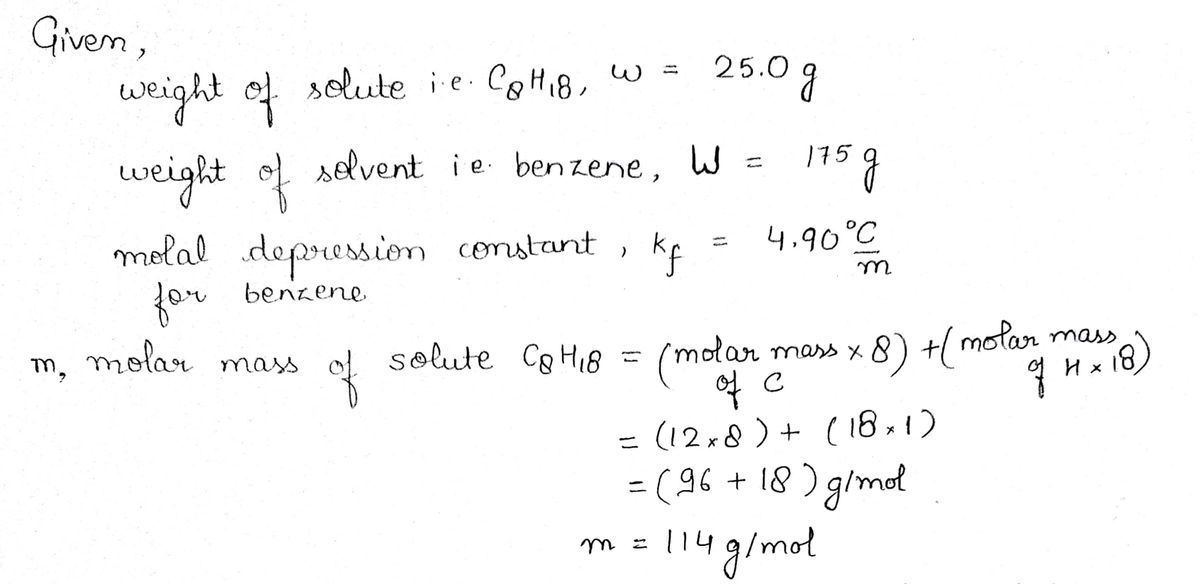 Given,
weight of solute i.e. C8H18, w = 25.0 g
weight of solvent i.e. benzene, W = 175 g
molal depression constant, kf = 4.90 °C/m
for benzene
m, molar mass of solute C8H18 = (molar mass of C × 8) + (molar mass of H × 18)
= (12 × 8) + (18 × 1)
= (96 + 18) g/mol
m = 114 g/mol